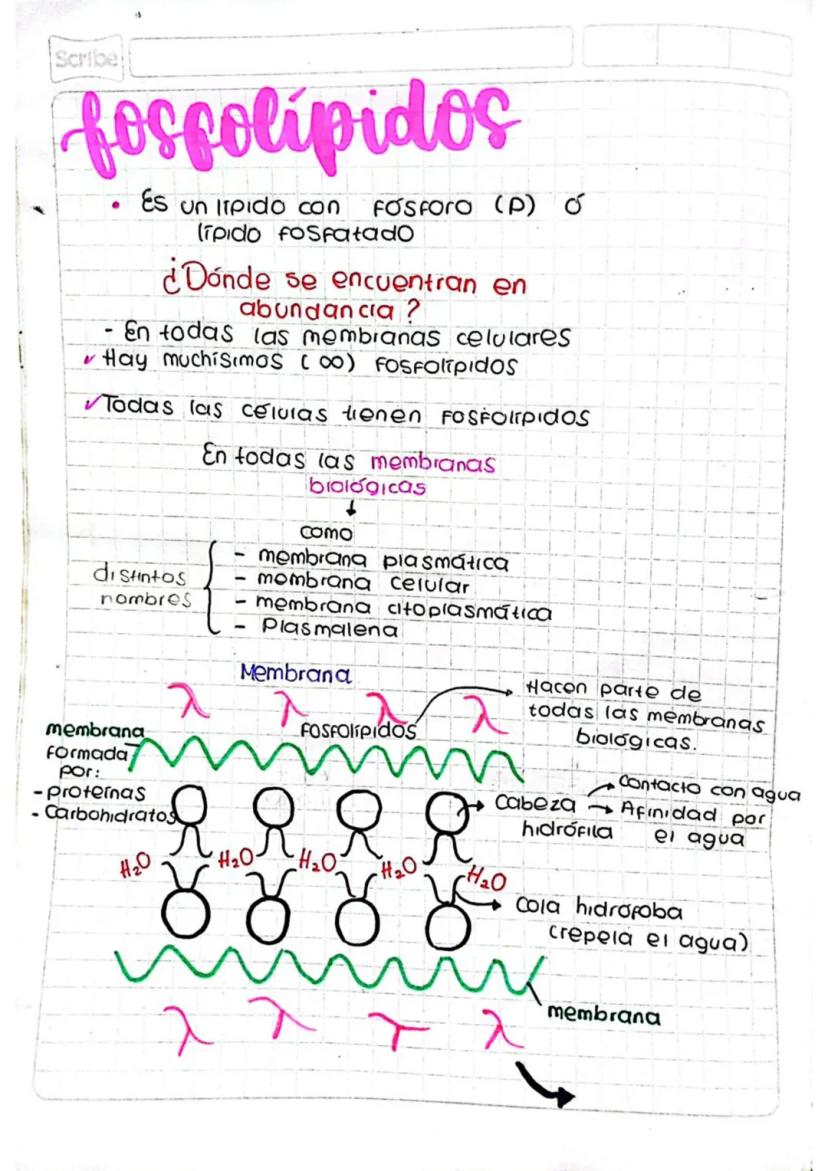 Scribe
fosfolípidos
• Es un lípido con fósforo (P) ó
lípido fosfatado
¿Dónde se encuentran en
abundancia?
- En todas las membranas celulares
✓ Hay muchísimos (∞) fosfolípidos
✓ Todas las células tienen fosfolípidos
En todas las membranas
biológicas
↓
como
distintos
nombres
- membrana plasmática
- membrana celular
- membrana citoplasmática
- Plasmalena
Membrana
fosfolípidos
Hacen parte de
todas las membranas
biológicas.
membrana
formada
por:
- proteínas
- Carbohidratos
Cabeza
hidrófila
Contacto con agua
Afinidad por
el agua
H₂O H₂O H₂O H₂O H₂O
Cola hidrófoba
(repela el agua)
membrana